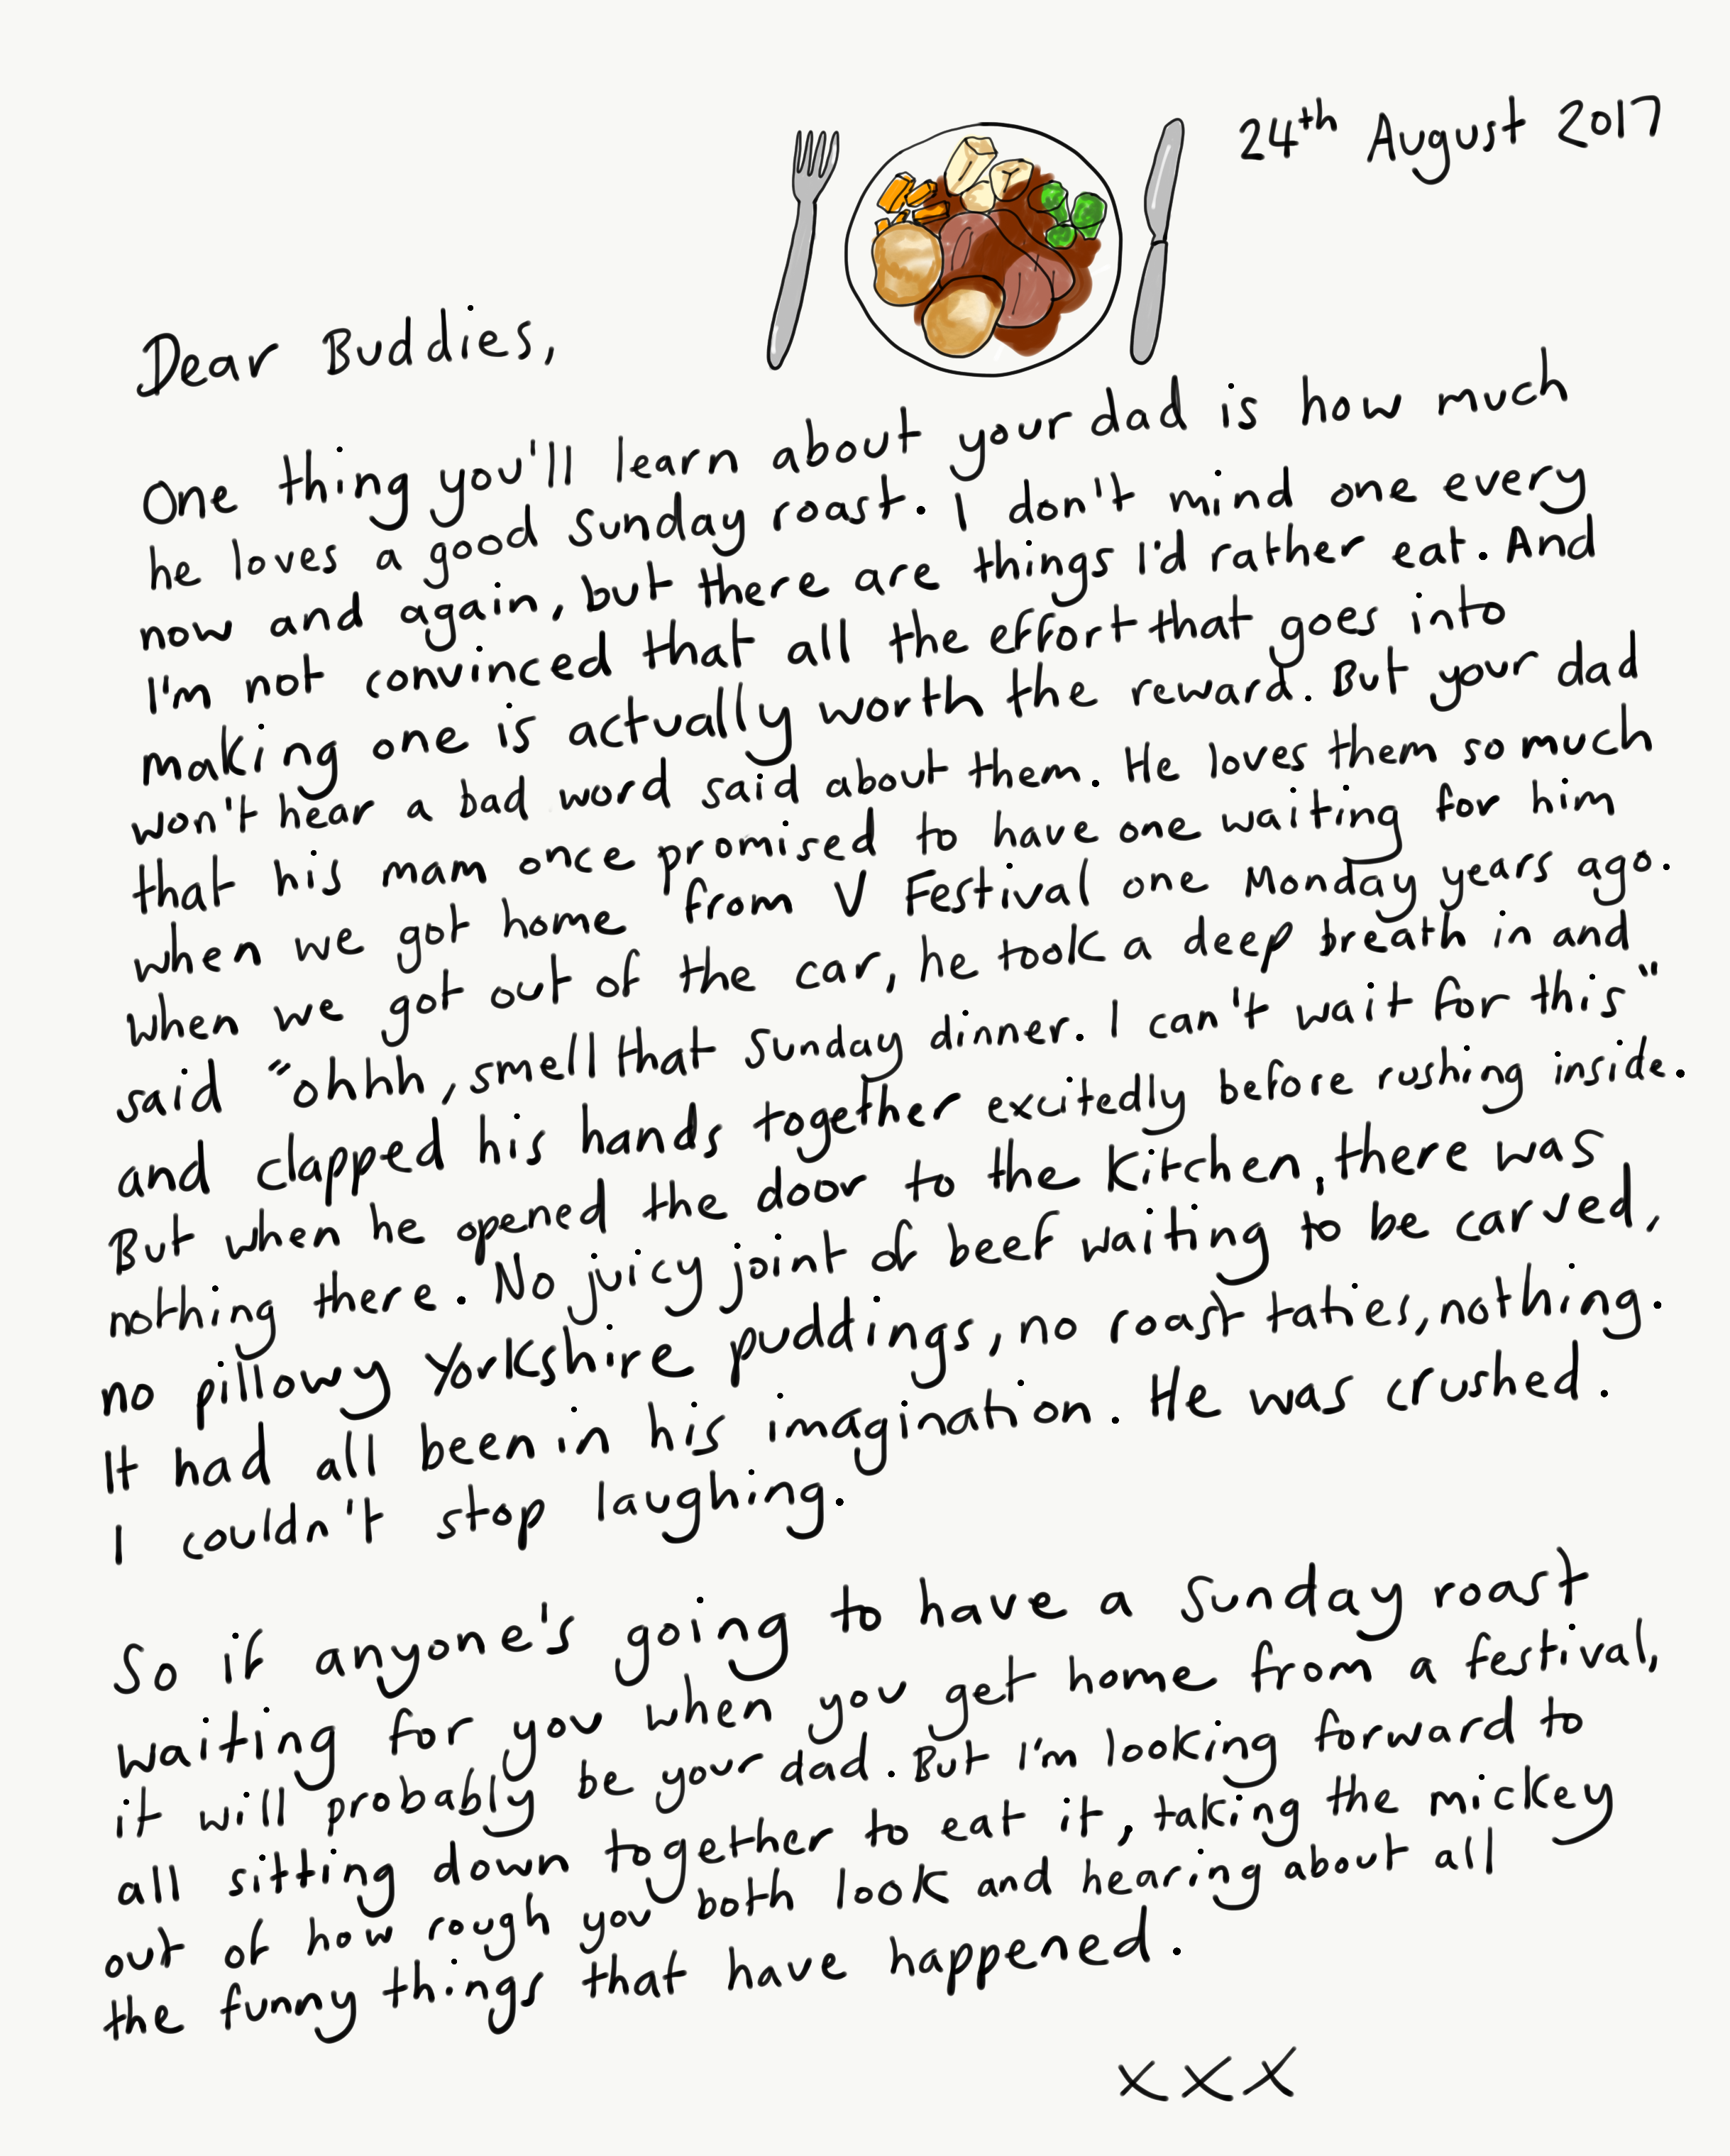 24th August 2017
Dear Buddies,
One thing you'll learn about your dad is how much
he loves a good Sunday roast. I don't mind one every
now and again, but there are things I'd rather eat. And
I'm not convinced that all the effort that goes into
making one is actually worth the reward. But your dad
won't hear a bad word said about them. He loves them so much
that his mam once promised to have one waiting for him
when we got home from V Festival one Monday years ago.
When we got out of the car, he took a deep breath in and
said "ohhh, smell that Sunday dinner. I can't wait for this"
and clapped his hands together excitedly before rushing inside.
But when he opened the door to the kitchen, there was
nothing there. No juicy joint of beef waiting to be carved,
no pillowy Yorkshire puddings, no roast taties, nothing.
It had all been in his imagination. He was crushed.
I couldn't stop laughing.
So if anyone's going to have a Sunday roast
waiting for you when you get home from a festival,
it will probably be your dad. But I'm looking forward to
all sitting down together to eat it, taking the mickey
out of how rough you both look and hearing about all
the funny things that have happened.
xxx